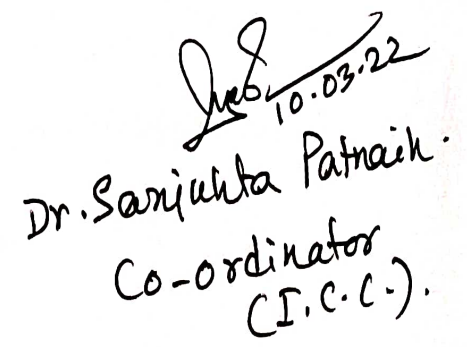 10.03.22
Dr. Sanjukta Patnaik.
Co-ordinator
(I.C.C.).